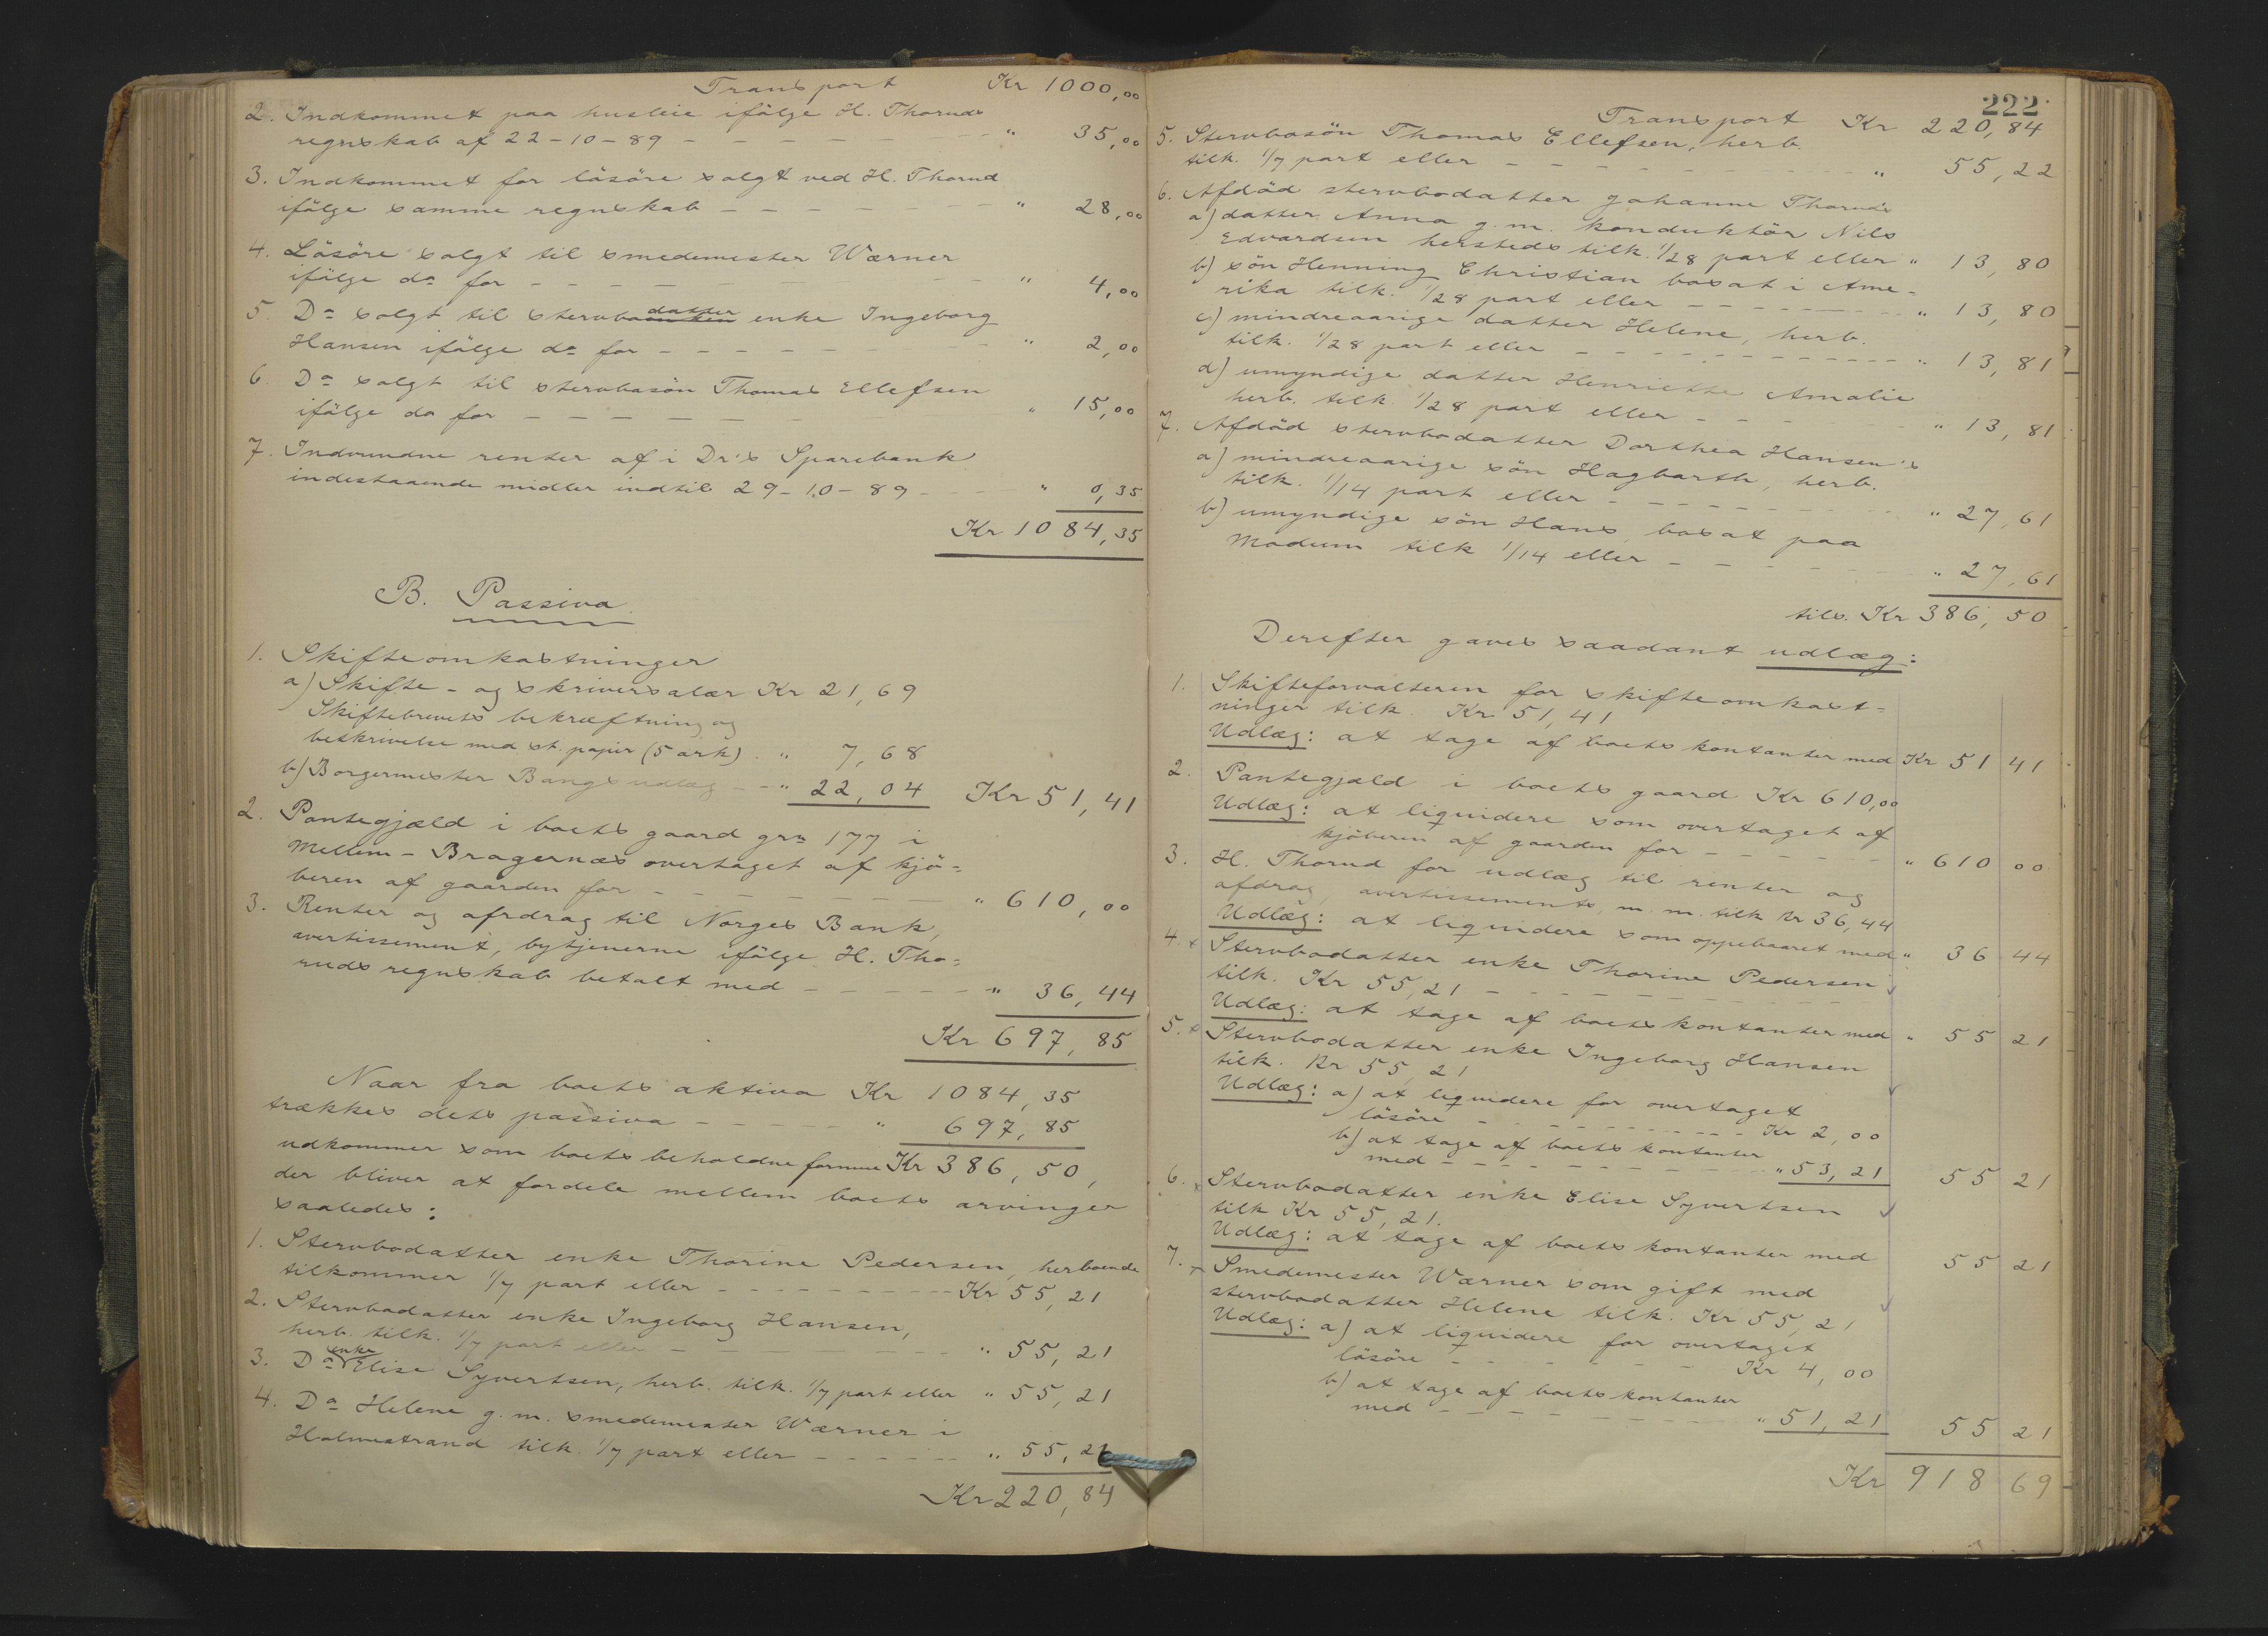 Transport Kr 1000,00
2. Indkommet paa husleie ifölge H. Thoruds
regnskab af 22-10-89 - - - - - " 35,00
3. Indkommet for lösöre solgt ved H. Thorud
ifölge samme regnskab - - - - - " 28,00
4. Lösöre solgt til smedemester Wærner
ifölge do for - - - - - " 4,00
5. Do solgt til stervbodatter enke Ingeborg
Hansen ifölge do for - - - - - " 2,00
6. Do solgt til stervbosön Thomas Ellefsen
ifölge do for - - - - - " 15,00
7. Indvundne renter af i Dr's Sparebank
indestaaende midler indtil 29-10-89 - - " 0,35
Kr 1084,35
B. Passiva.
1. Skifteomkostninger
a) Skifte- og skriversalær Kr 21,69
Skiftebrevets bekræftning og
beskrivelse med st. papir (5 ark) . " 7,68
b) Borgermester Bangs udlæg - - " 22,04 Kr 51,41
2. Pantegjæld i boets gaard grn 177 i
Mellem-Bragernæs overtaget af kjö-
beren af gaarden for - - - - - " 610,00
3. Renter og afdrag til Norges Bank,
avertissement, bytjenerne ifölge H. Tho-
ruds regnskab betalt med - - - - - " 36,44
Kr 697,85
Naar fra boets aktiva Kr 1084,35
trækkes dets passiva - - - - - " 697,85
udkommer som boets beholdne formue Kr 386,50,
der bliver at fordele mellem boets arvinger
saaledes:
1. Stervbodatter enke Thorine Pedersen, herboende
tilkommer 1/7 part eller - - - - - Kr 55,21
2. Stervbodatter enke Ingeborg Hansen,
herb. tilk. 1/7 part eller - - - - - " 55,21
3. Do enke Elise Syvertsen, herb. tilk. 1/7 part eller " 55,21
4. Do Helene g.m. smedemester Wærner i
Holmestrand tilk. 1/7 part eller - - - - - " 55,21
Kr 220,84
222
Transport Kr 220,84
5. Stervbosön Thomas Ellefsen, herb.
tilk. 1/7 part eller - - - - - " 55,22
6. Afdöd stervbodatter Johanne Thoruds
a) datter Anna g.m. konduktör Nils
Edvardsen hersteds tilk. 1/28 part eller " 13,80
b) sön Henning Christian bosat i Ame-
rika tilk. 1/28 part eller - - - - - " 13,80
c) mindreaarige datter Helene, herb.
tilk. 1/28 part eller - - - - - " 13,81
d) umyndige datter Henriette Amalie
herb. tilk. 1/28 part eller - - - - - " 13,81
7. Afdöd stervbodatter Dorthea Hansen's
a) mindreaarige sön Hagbarth, herb.
tilk. 1/14 part eller - - - - - " 27,61
b) umyndige sön Hans, bosat paa
Modum tilk 1/14 eller - - - - - " 27,61
tils. Kr 386,50
Derefter gaves saadant udlæg:
1. Skifteforvalteren for skifteomkost-
ninger tilk. Kr 51,41
Udlæg: at tage af boets kontanter med Kr 51 41
2. Pantegjæld i boets gaard Kr 610,00
Udlæg: at liquidere som overtaget af
kjöberen af gaarden for - - - - - " 610 00
3. H. Thorud for udlæg til renter og
afdrag, avertissements, m.m. tilk Kr 36,44
Udlæg: at liquidere som oppebaaret med " 36 44
4. x Stervbodatter enke Thorine Pedersen
tilk. Kr 55,21 - - - - -
Udlæg: at tage af boets kontanter med " 55 21
5. x Stervbodatter enke Ingeborg Hansen
tilk. Kr 55,21
Udlæg: a) at liquidere for overtaget
lösöre - - - - - Kr 2,00
b) at tage af boets kontanter
med - - - - - " 53,21 55 21
6. x Stervbodatter enke Elise Syvertsen
tilk Kr 55,21.
Udlæg: at tage af boets kontanter med 55 21
7. Smedemester Wærner som gift med
stervbodatter Helene tilk. Kr 55,21
Udlæg: a) at liquidere for overtaget
lösöre - - - - - Kr 4,00
b) at tage af boets kontanter
med - - - - - " 51,21 55 21
Kr 918 69